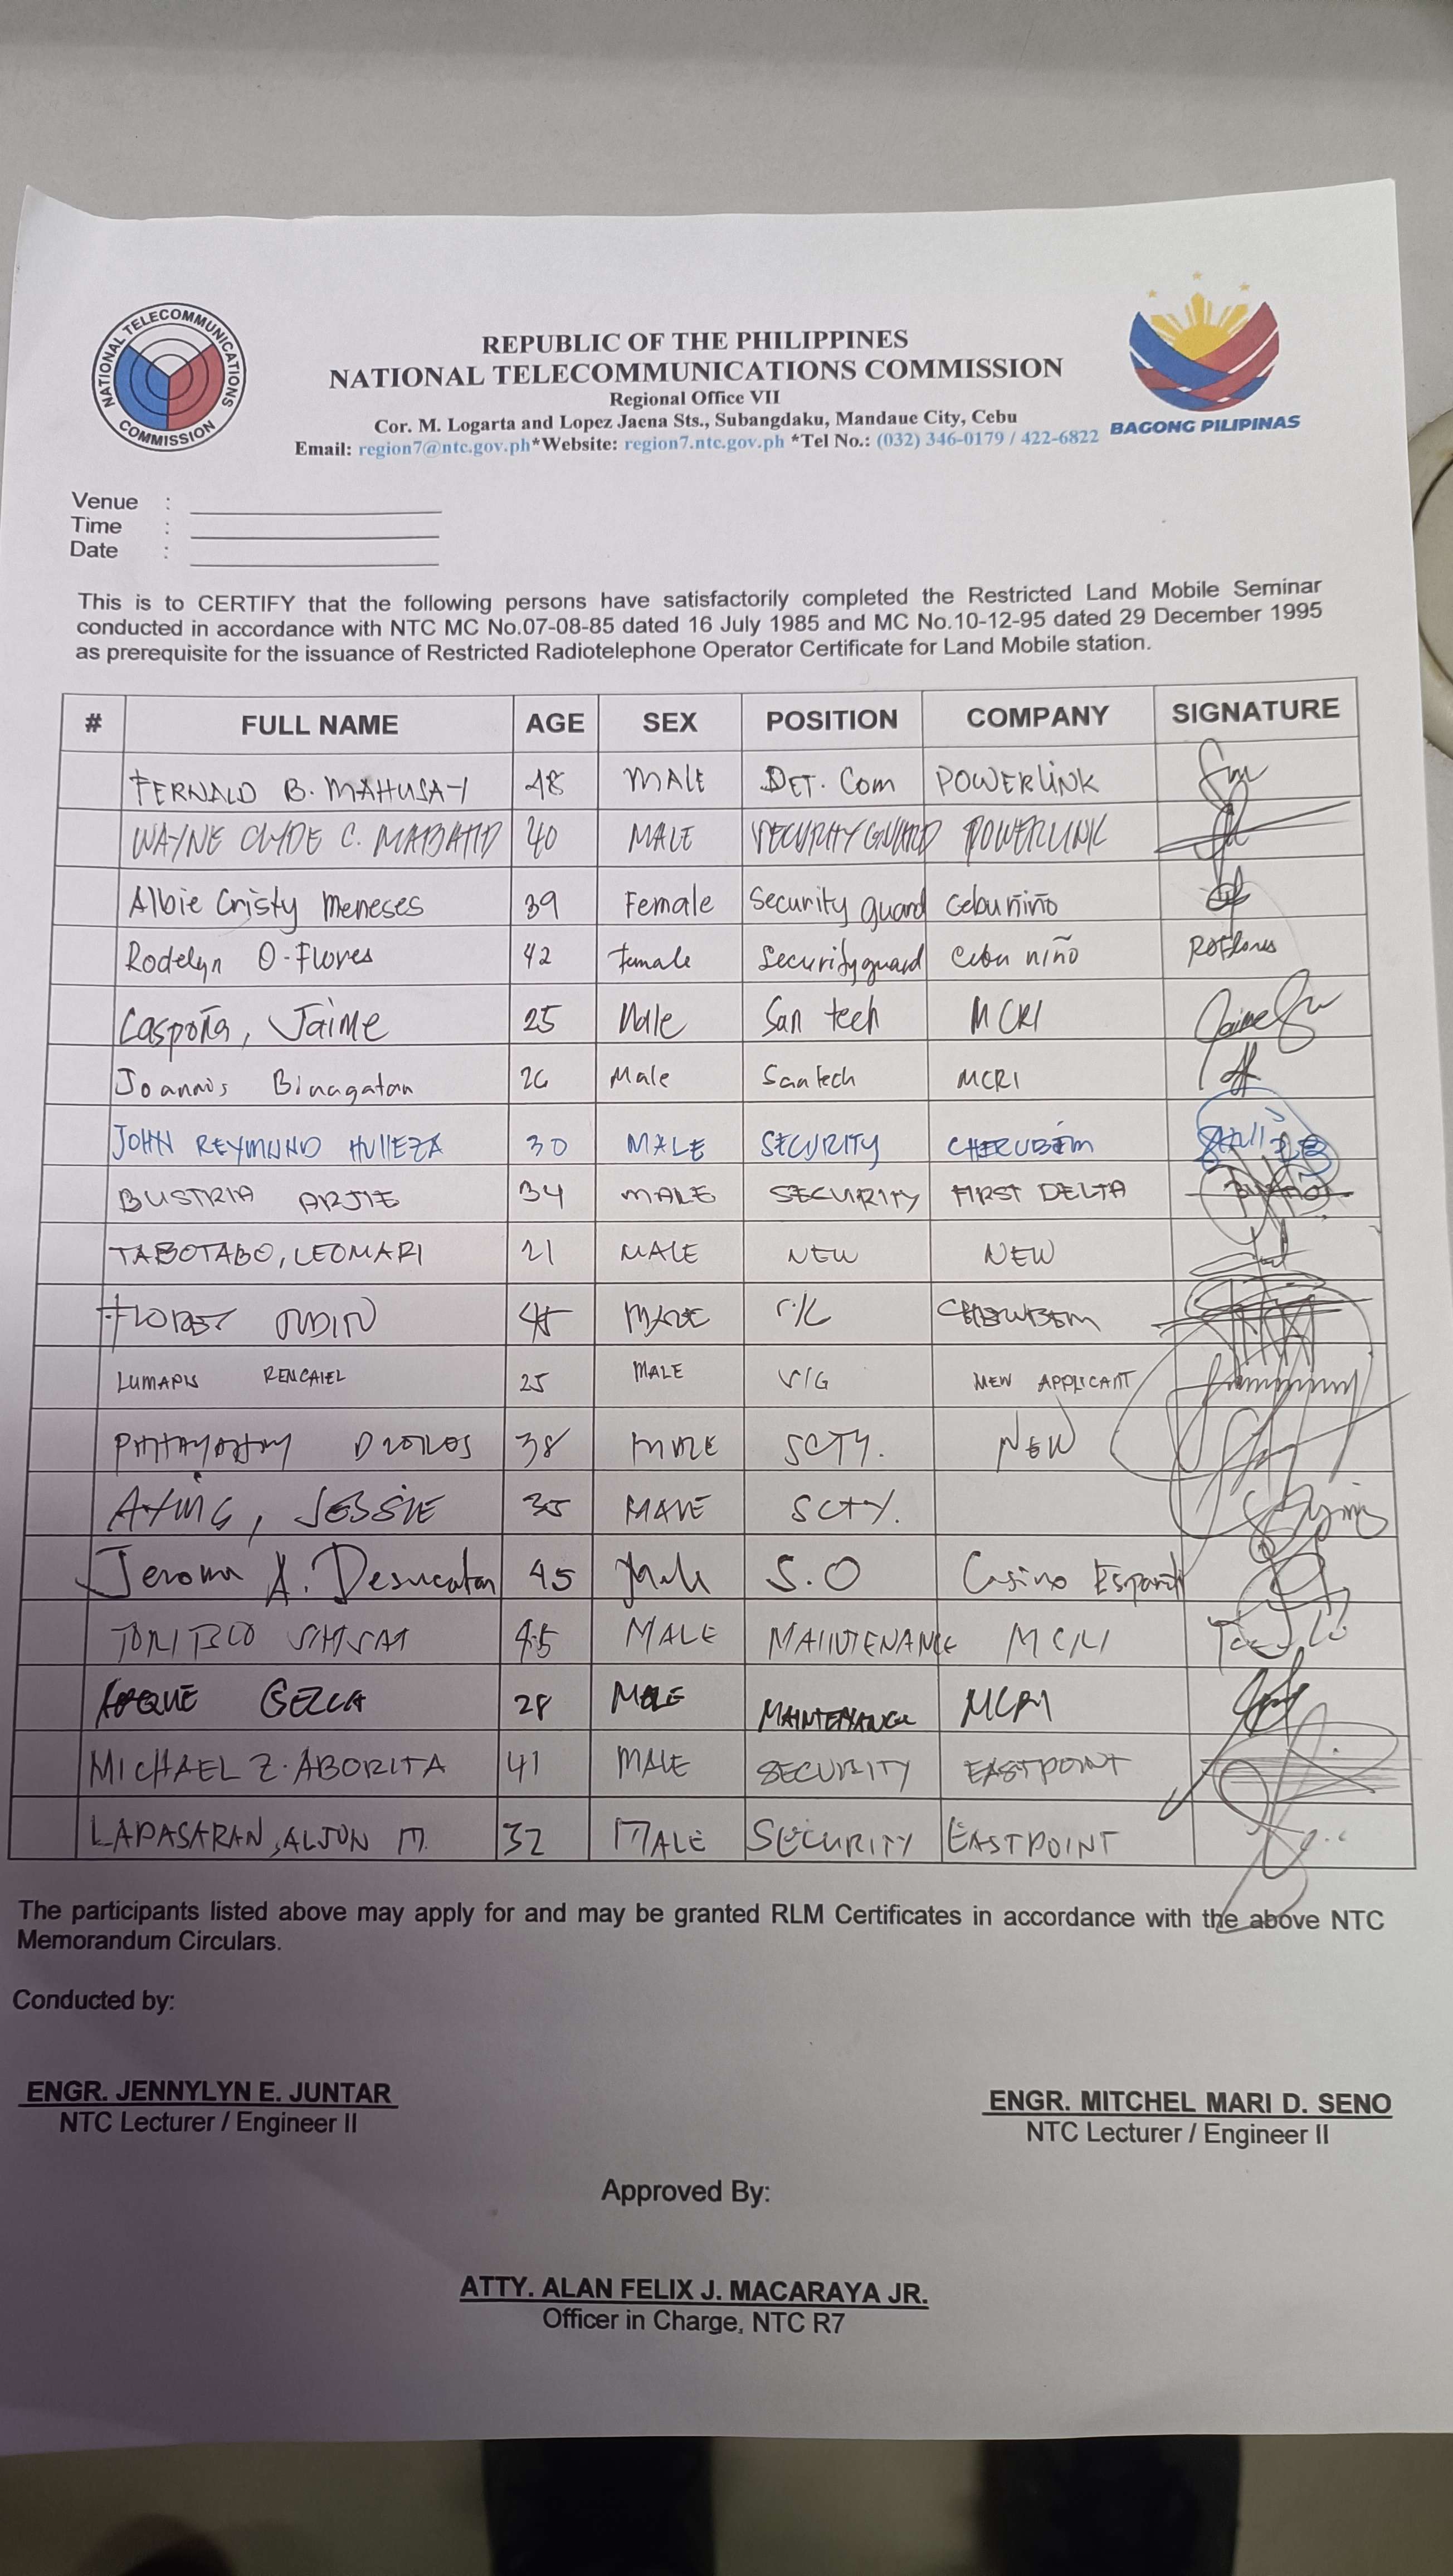 NATIONAL TELECOMMUNICATIONS COMMISSION
REPUBLIC OF THE PHILIPPINES
NATIONAL TELECOMMUNICATIONS COMMISSION
Regional Office VII
Cor. M. Logarta and Lopez Jaena Sts., Subangdaku, Mandaue City, Cebu
Email: region7@ntc.gov.ph*Website: region7.ntc.gov.ph *Tel No.: (032) 346-0179 / 422-6822
BAGONG PILIPINAS
Venue :
Time :
Date :
This is to CERTIFY that the following persons have satisfactorily completed the Restricted Land Mobile Seminar
conducted in accordance with NTC MC No.07-08-85 dated 16 July 1985 and MC No.10-12-95 dated 29 December 1995
as prerequisite for the issuance of Restricted Radiotelephone Operator Certificate for Land Mobile station.
# FULL NAME AGE SEX POSITION COMPANY SIGNATURE
FERNALD B. MAHUSAY 48 MALE DET. Com POWERLINK
WAYNE CLYDE C. 40 MALE SECURITY GUARD POWERLINK
Albie Cristy Meneses 39 Female Security guard Cebu niño
Rodelyn O. Flores 42 Female Security guard Cebu niño ROFlores
Caspoña, Jaime 25 Male San tech MCRI
Joannis Binagatan 26 Male San tech MCRI
JOHN REYMUND HULLEZA 30 MALE SECURITY CHERUBIM
BUSTRIA ARJIE 34 MALE SECURITY FIRST DELTA
TABOTABO, LEOMARI 21 MALE NEW NEW
MALE CHERUBIM
LUMAPIS RENCAIEL 25 MALE S/G NEW APPLICANT
38 MALE SCTY. NEW
AYING, JESSIE 35 MALE SCTY.
Jerome A. 45 Male S.O Casino Español
TORIBIO 45 MALE MAINTENANCE MCRI
ROQUE 28 MALE MAINTENANCE MCRI
MICHAEL Z. ABORITA 41 MALE SECURITY EASTPOINT
LAPASARAN, ALJON M. 32 MALE SECURITY EASTPOINT
The participants listed above may apply for and may be granted RLM Certificates in accordance with the above NTC
Memorandum Circulars.
Conducted by:
ENGR. JENNYLYN E. JUNTAR
NTC Lecturer / Engineer II
ENGR. MITCHEL MARI D. SENO
NTC Lecturer / Engineer II
Approved By:
ATTY. ALAN FELIX J. MACARAYA JR.
Officer in Charge, NTC R7